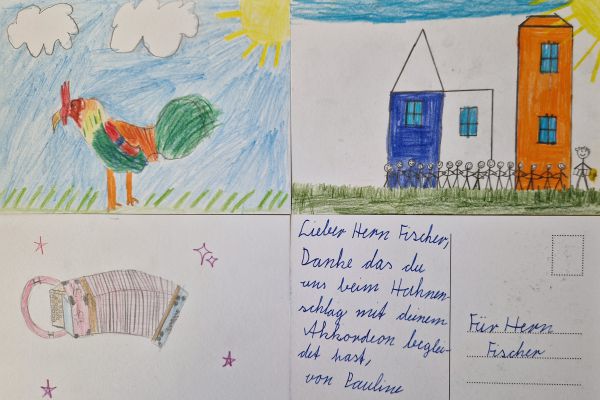 Lieber Herrn Fischer,
Danke das du
uns beim Hahnen-
schlag mit deinem
Akkordeon beglei-
det hast,
von Pauline
Für Herrn
Fischer